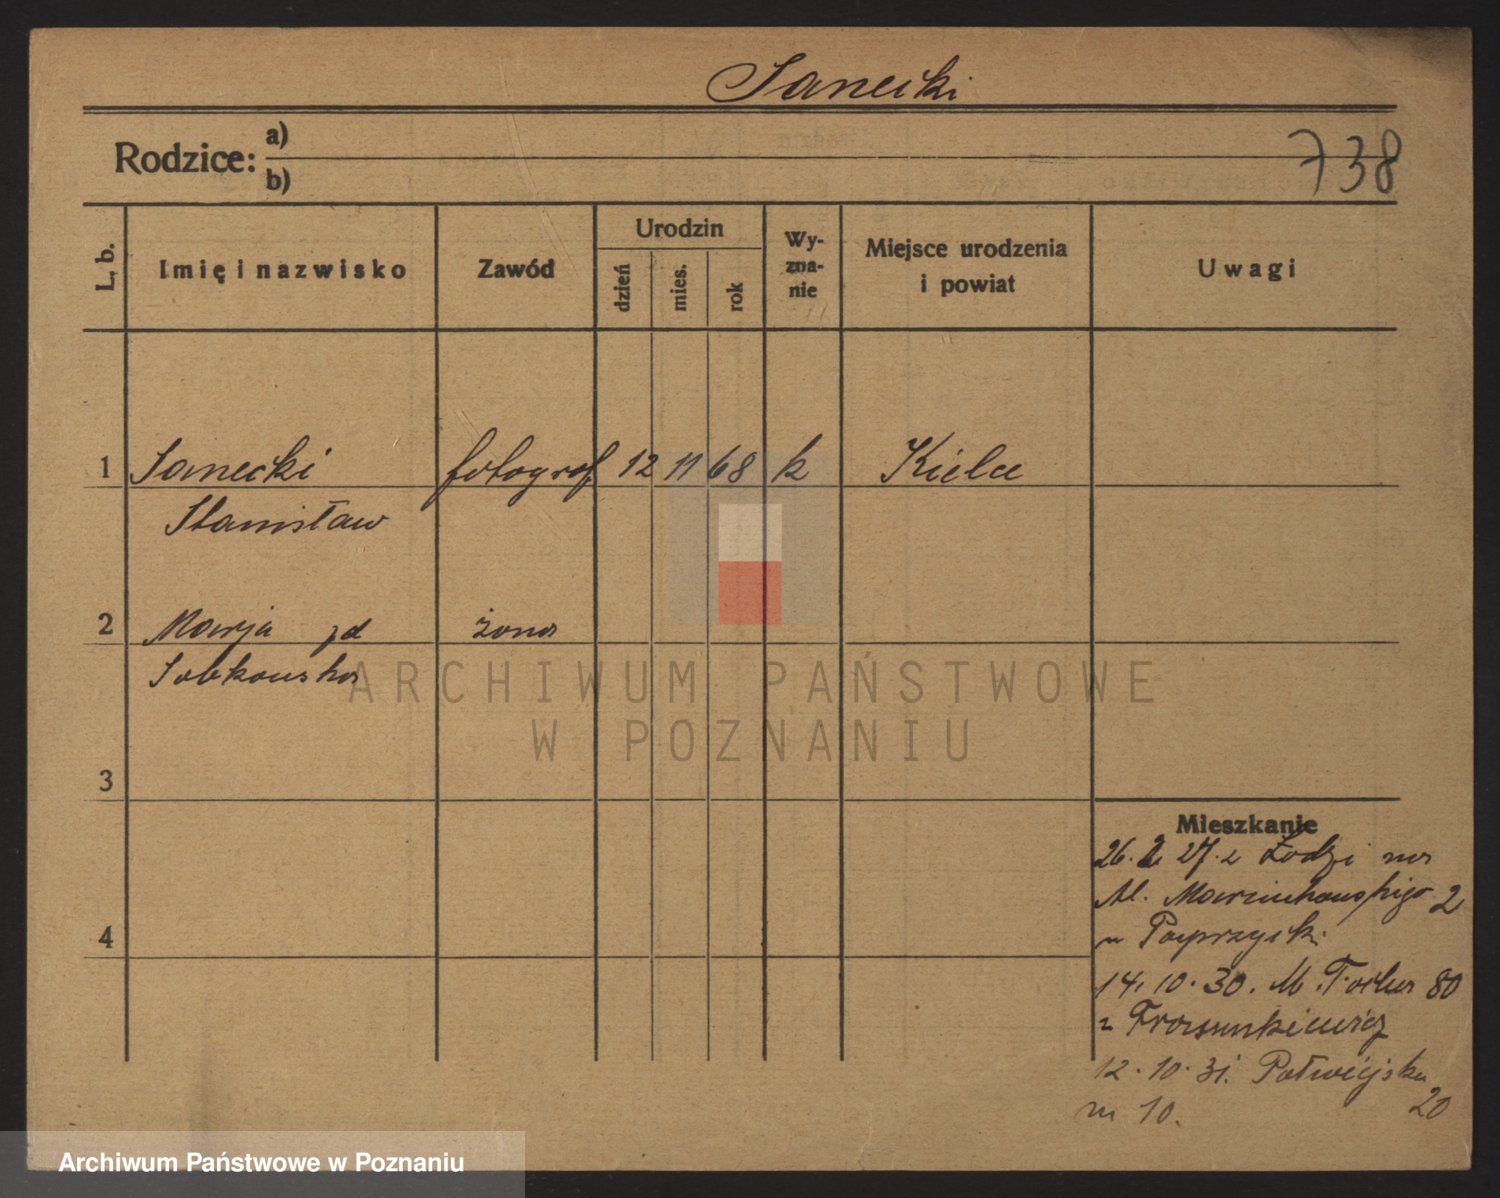 Sanecki
Rodzice: a)
b)
738
L. b.
Imię i nazwisko
Zawód
Urodzin
dzień
mies.
rok
Wy-
zna-
nie
Miejsce urodzenia
i powiat
Uwagi
1 Sanecki fotograf 12 11 68 k Kielce
Stanisław
2 Marja zd żona
Sobkowska
3
4
ARCHIWUM PAŃSTWOWE
W POZNANIU
Mieszkanie
26. 2. 27. z Łodzi na
Al. Marcinkowskiego 2
u Paprzycki
14. 10. 30. M. Focha 80
12. 10. 31. Półwiejska
20
m 10.
Archiwum Państwowe w Poznaniu